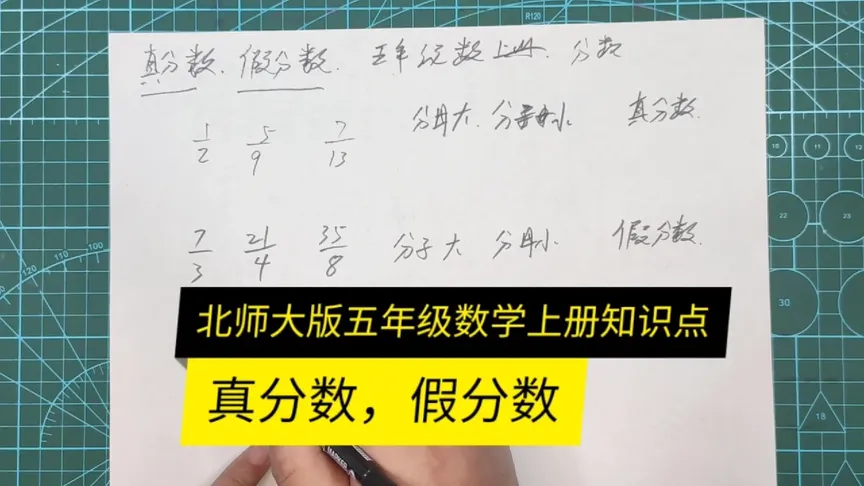 真分数、假分数. 五年级数上册. 分数
1/2 5/9 7/13 分母大. 分子小 真分数.
7/3 21/4 35/8 分子大 分母小. 假分数.
北师大版五年级数学上册知识点
真分数，假分数
R120
10 11 12
22
30
18
120 110 100
MARKER